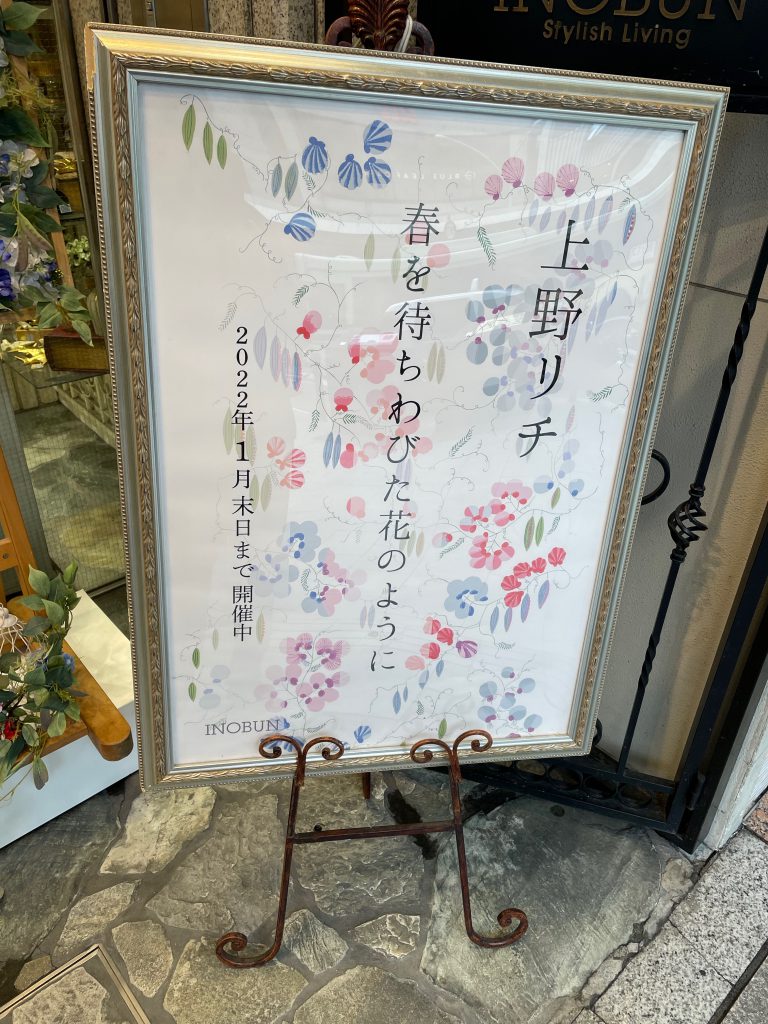 INOBUN
Stylish Living
上野リチ
春を待ちわびた花のように
2022年1月末日まで開催中
INOBUN